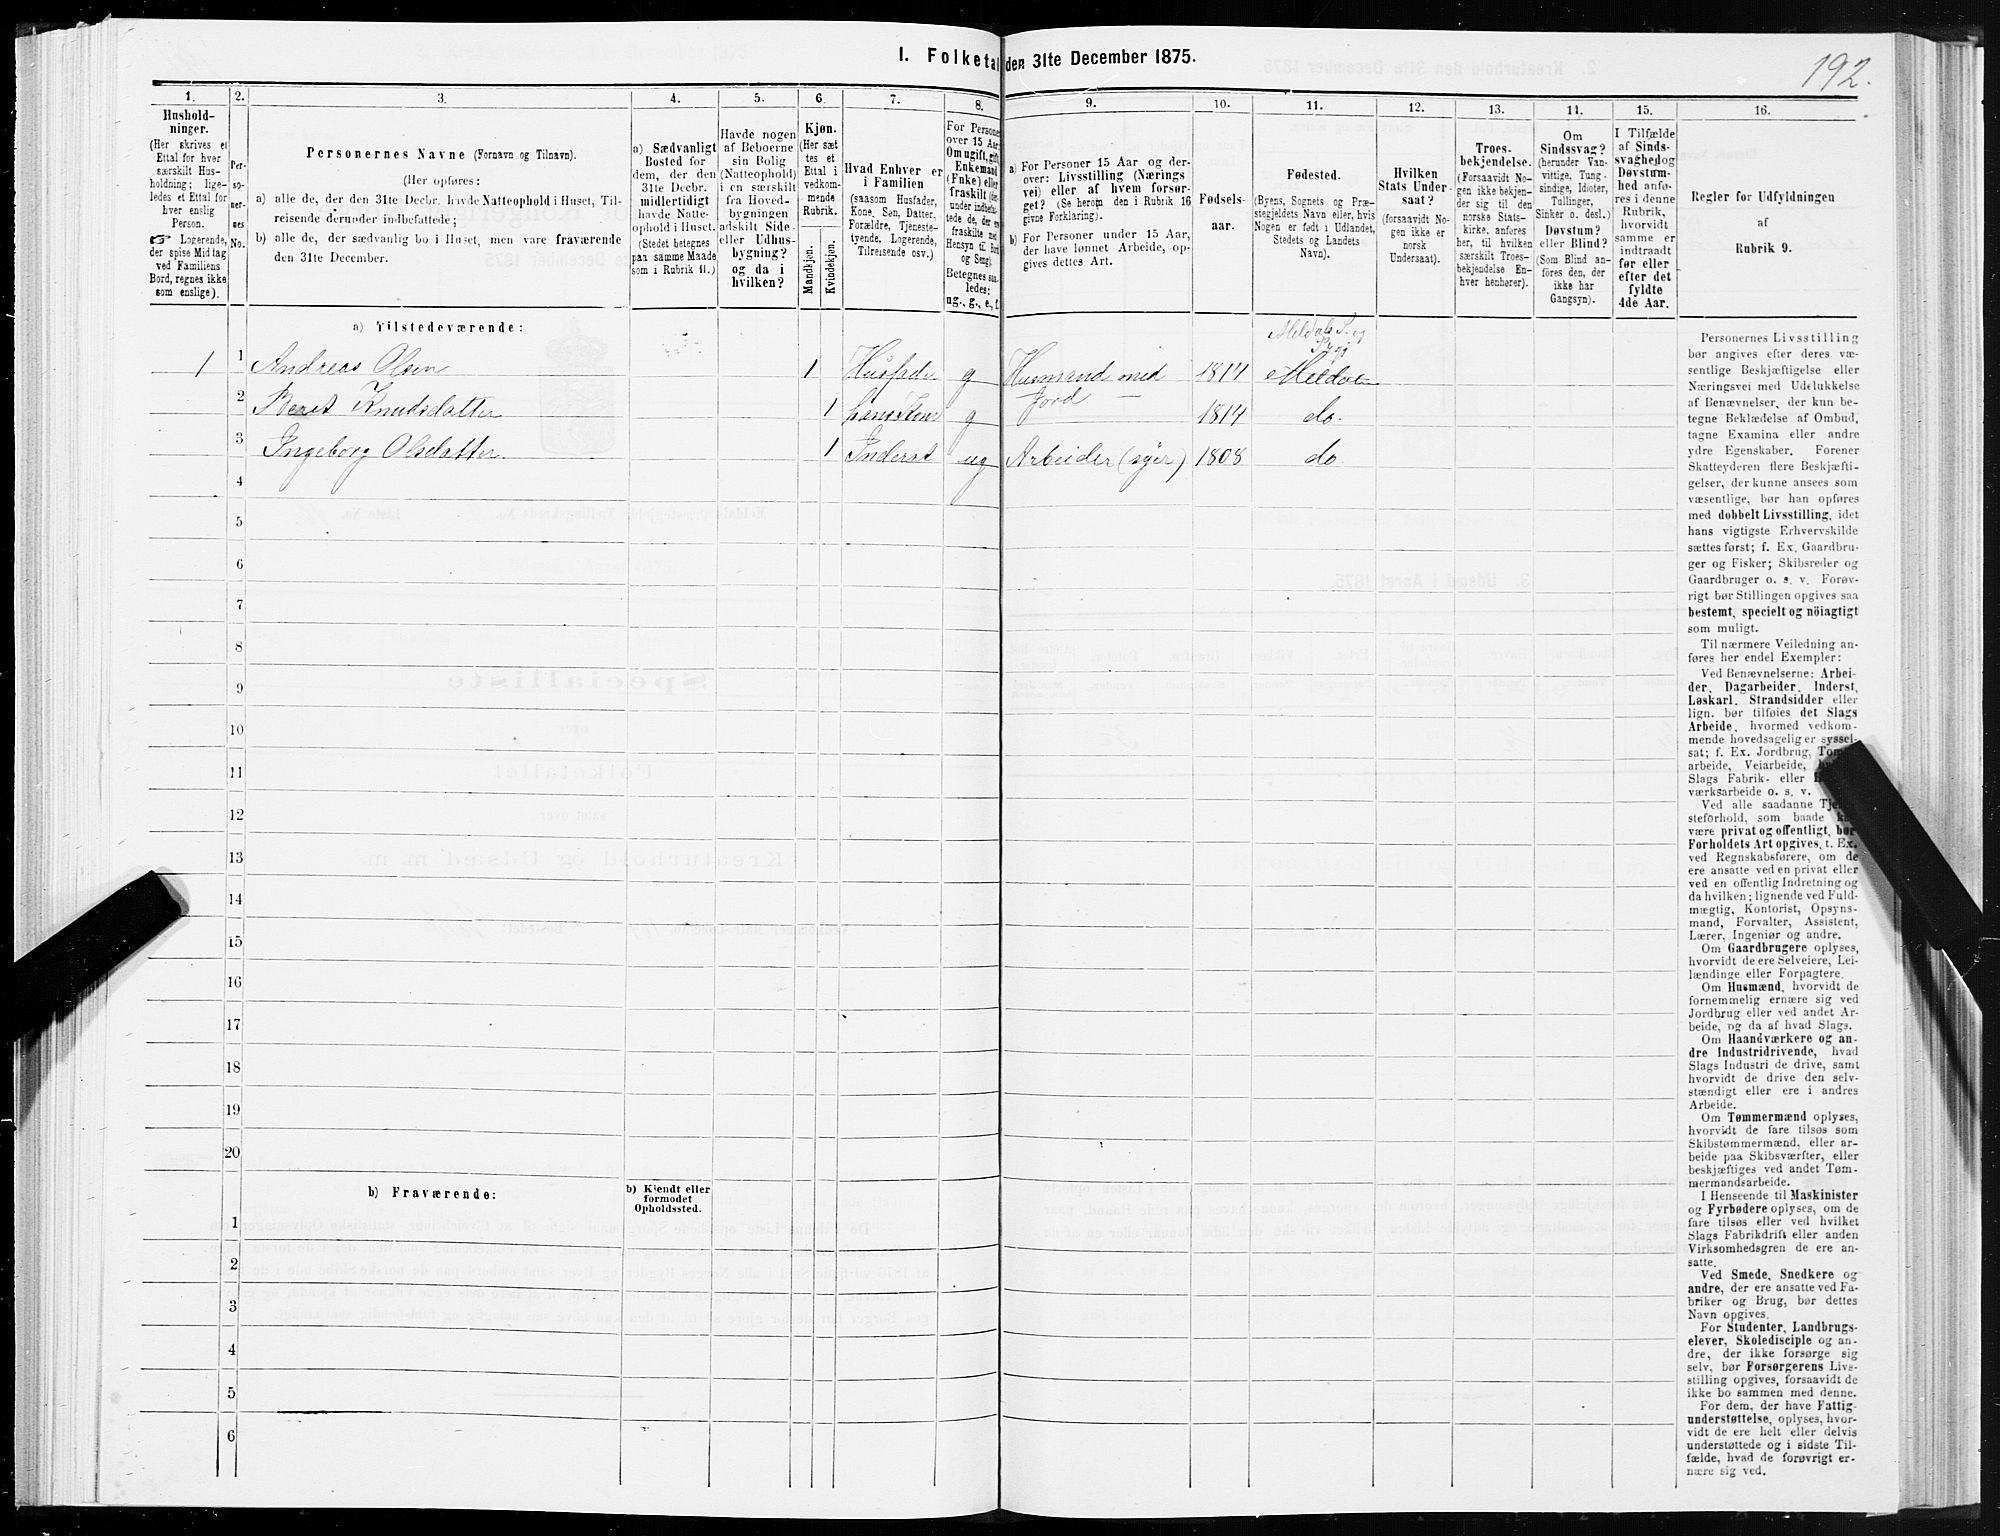 192.
I. Folketal den 31te December 1875.
1.
2.
3.
4.
5.
6.
7.
8.
9.
10.
11.
12.
13.
14.
15.
16.
Hushold-
ninger.
(Her skrives et
Ettal for hver
særskilt Hus-
holdning; lige-
ledes et Ettal for
hver enslig
Person.
☞ Logerende,
der spise Middag
ved Familiens
Bord, regnes ikke
som enslige).
Per-
so-
ner-
nes
No.
Personernes Navne (Fornavn og Tilnavn).
(Her opføres:
a) alle de, der den 31te Decbr. havde Natteophold i Huset, Til-
reisende derunder indbefattede;
b) alle de, der sædvanlig bo i Huset, men vare fraværende
den 31te December.
a) Sædvanligt
Bosted for
dem, der den
31te Decbr.
midlertidigt
havde Natte-
ophold i Huset.
(Stedet betegnes
paa samme Maade
som i Rubrik 11.)
Havde nogen
af Beboerne
sin Bolig
(Natteophold)
i en særskilt
fra Hoved-
bygningen
adskilt Side-
eller Udhus-
bygning?
og da i
hvilken?
Kjøn.
(Her sæt-
tes et
Ettal i
vedkom-
mende
Rubrik.
Mandkjøn.
Kvindekjøn.
Hvad Enhver er
i Familien
(saasom Husfader,
Kone, Søn, Datter,
Forældre, Tjeneste-
tyende, Logerende,
Tilreisende osv.)
For Personer
over 15 Aar:
Om ugift, gift,
Enkemand
(Enke) eller
fraskilt
Betegnes saa-
ledes:
ug., g., e., f.
a) For Personer 15 Aar og der-
over: Livsstilling (Nærings-
vei) eller af hvem forsør-
get? (Se herom den i Rubrik 16
givne Forklaring).
b) For Personer under 15 Aar,
der have lønnet Arbeide, op-
gives dettes Art.
Fødsels-
aar.
Fødested.
(Byens, Sognets og Præ-
stegjeldets Navn eller, hvis
Nogen er født i Udlandet,
Stedets og Landets
Navn).
Hvilken
Stats Under-
saat?
(forsaavidt No-
gen ikke er
norsk
Undersaat).
Troes-
bekjendelse.
(Forsaavidt No-
gen ikke bekjen-
der sig til den
norske Stats-
kirke, anføres
her, til hvilken
særskilt Troes-
bekjendelse En-
hver henhører).
Om
Sindssvag?
(herunder Van-
vittige, Tung-
sindige, Idioter,
Tullinger,
Sinker o. desl.)
Døvstum?
eller Blind?
(Som Blind an-
føres den, der
ikke har
Gangsyn).
I Tilfælde
af Sinds-
svaghed og
Døvstum-
hed anfø-
res i denne
Rubrik,
hvorvidt
samme er
indtraadt
før eller
efter det
fyldte
4de Aar.
Regler for Udfyldningen
af
Rubrik 9.
a) Tilstedeværende:
Meldals S. og
Prgj
1 1 Andreas Olsen 1 Husfader g Husmand med 1817 Meldal
Jord
2 Beret Knudsdatter 1 hans Kone g 1817 do.
3 Ingeborg Olsdatter 1 Inderst ug Arbeider (syer) 1808 do
4
5
6
7
8
9
10
11
12
13
14
15
16
17
18
19
20
b) Fraværende:
b) Kjendt eller
formodet
Opholdssted.
1
2
3
4
5
6
Personernes Livsstilling
bør angives efter deres væ-
sentlige Beskjæftigelse eller
Næringsvei med Udelukkelse
af Benævnelser, der kun be-
tegne Beklædelse af Ombud,
tagne Examina eller andre
ydre Egenskaber. Forener
Skatteyderen flere Beskjæfti-
gelser, der kunne ansees som
væsentlige, bør han opføres
med dobbelt Livsstilling, idet
hans vigtigste Erhvervskilde
sættes først; f. Ex. Gaardbru-
ger og Fisker; Skibsreder og
Gaardbruger o. s. v. Forøv-
rigt bør Stillingen opgives saa
bestemt, specielt og nöiagtigt
som muligt.
Til nærmere Veiledning an-
føres her endel Exempler:
Ved Benævnelserne: Arbei-
der, Dagarbeider, Inderst,
Løskarl, Strandsidder eller
lign. bør tilføies det Slags
Arbeide, hvormed vedkom-
mende hovedsagelig er syssel-
sat; f. Ex. Jordbrug, Tom-
arbeide, Veiarbeide,
Slags Fabrik- eller
værksarbeide o. s. v.
Ved alle saadanne Tje-
steforhold, som baade
være privat og offentligt, bør
Forholdets Art opgives, t. Ex.
ved Regnskabsførere, om de
ere ansatte ved en privat eller
ved en offentlig Indretning og
da hvilken; lignende ved Fuld-
mægtig, Kontorist, Opsyns-
mand, Forvalter, Assistent,
Lærer, Ingeniør og andre.
Om Gaardbrugere oplyses,
hvorvidt de ere Selveiere, Lei-
lændinge eller Forpagtere.
Om Husmænd, hvorvidt de
fornemmelig ernære sig ved
Jordbrug eller ved andet Ar-
beide, og da af hvad Slags.
Om Haandværkere og an-
dre Industridrivende, hvad
Slags Industri de drive, samt
hvorvidt de drive den selv-
stændigt eller ere i andres
Arbeide.
Om Tømmermænd oplyses,
hvorvidt de fare tilsøs som
Skibstømmermænd, eller ar-
beide paa Skibsværfter, eller
beskjæftiges ved andet Tøm-
mermandsarbeide.
I Henseende til Maskinister
og Fyrbødere oplyses, om de
fare tilsøs eller ved hvilket
Slags Fabrikdrift eller anden
Virksomhedsgren de ere an-
satte.
Ved Smede, Snedkere og
andre, der ere ansatte ved Fa-
briker og Brug, bør dettes
Navn opgives.
For Studenter, Landbrugs-
elever, Skoledisciple og an-
dre, der ikke forsørge sig
selv, bør Forsørgerens Livs-
stilling opgives, forsaavidt de
ikke bo sammen med denne.
For dem, der have Fattig-
understøttelse, oplyses, hvor-
vidt de ere helt eller delvis
understøttede og i sidste Til-
fælde, hvad de forøvrigt er-
nære sig ved.